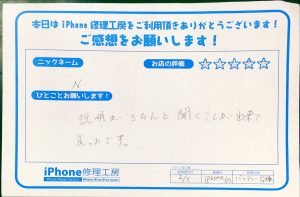 本日はiPhone修理工房をご利用頂きありがとうございます!
ご感想をお願いします!
ニックネーム
お店の評価 ☆☆☆☆☆
N
ひとことお願いします!
説明がきちんと聞くことが出来て
良かったです。
iPhone修理工房
2/5 iPhone